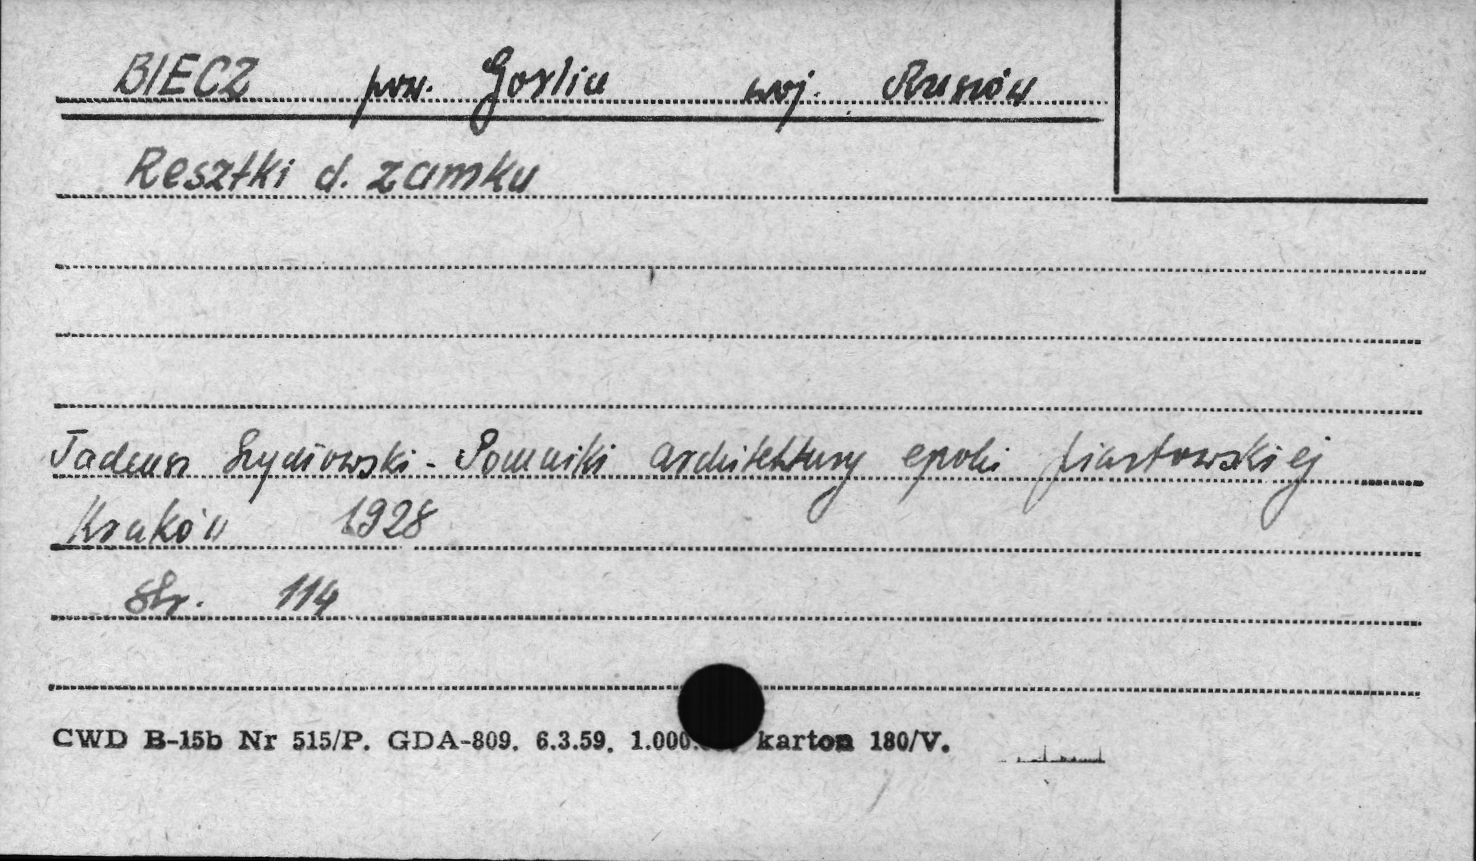 BIECZ pow. Gorlice woj. Rzeszów
Resztki d. zamku
Tadeusz Szydłowski - Pomniki architektury epoki piastowskiej
Kraków 1928
str. 114
CWD B-15b Nr 515/P. GDA-809. 6.3.59. 1.000. karton 180/V.